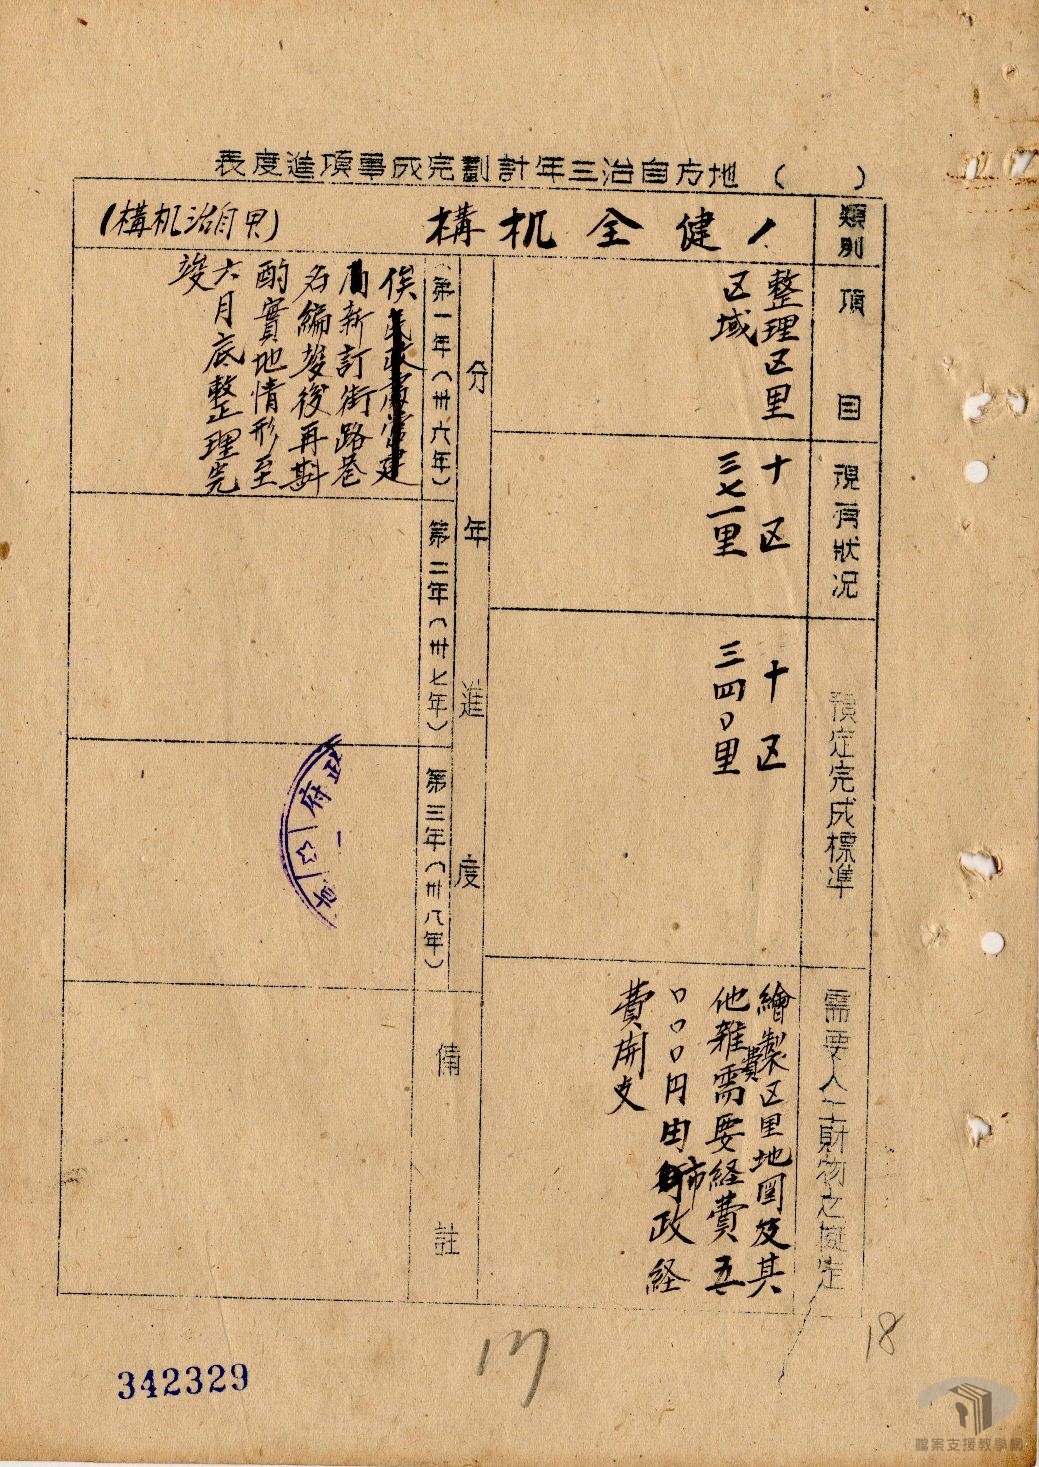 地方自治三年計劃完成事項進度表
( )
類別
1.健全机構
(甲、自治机構)
項目
整理区里
区域
現有狀况
十区
三七一里
預定完成標準
十区
三四〇里
需要人工財物之擬定
繪製区里地圖及其
他雜費需要経費五
〇〇〇円由市政経
費開支
分年進度
第一年(卅六年)
俟建
局新訂街路巷
名編竣後再斟
酌實地情形至
六月底整理完
竣
第二年(卅七年)
第三年(卅八年)
備註
政府
省
342329
17
18
檔案支援教學網